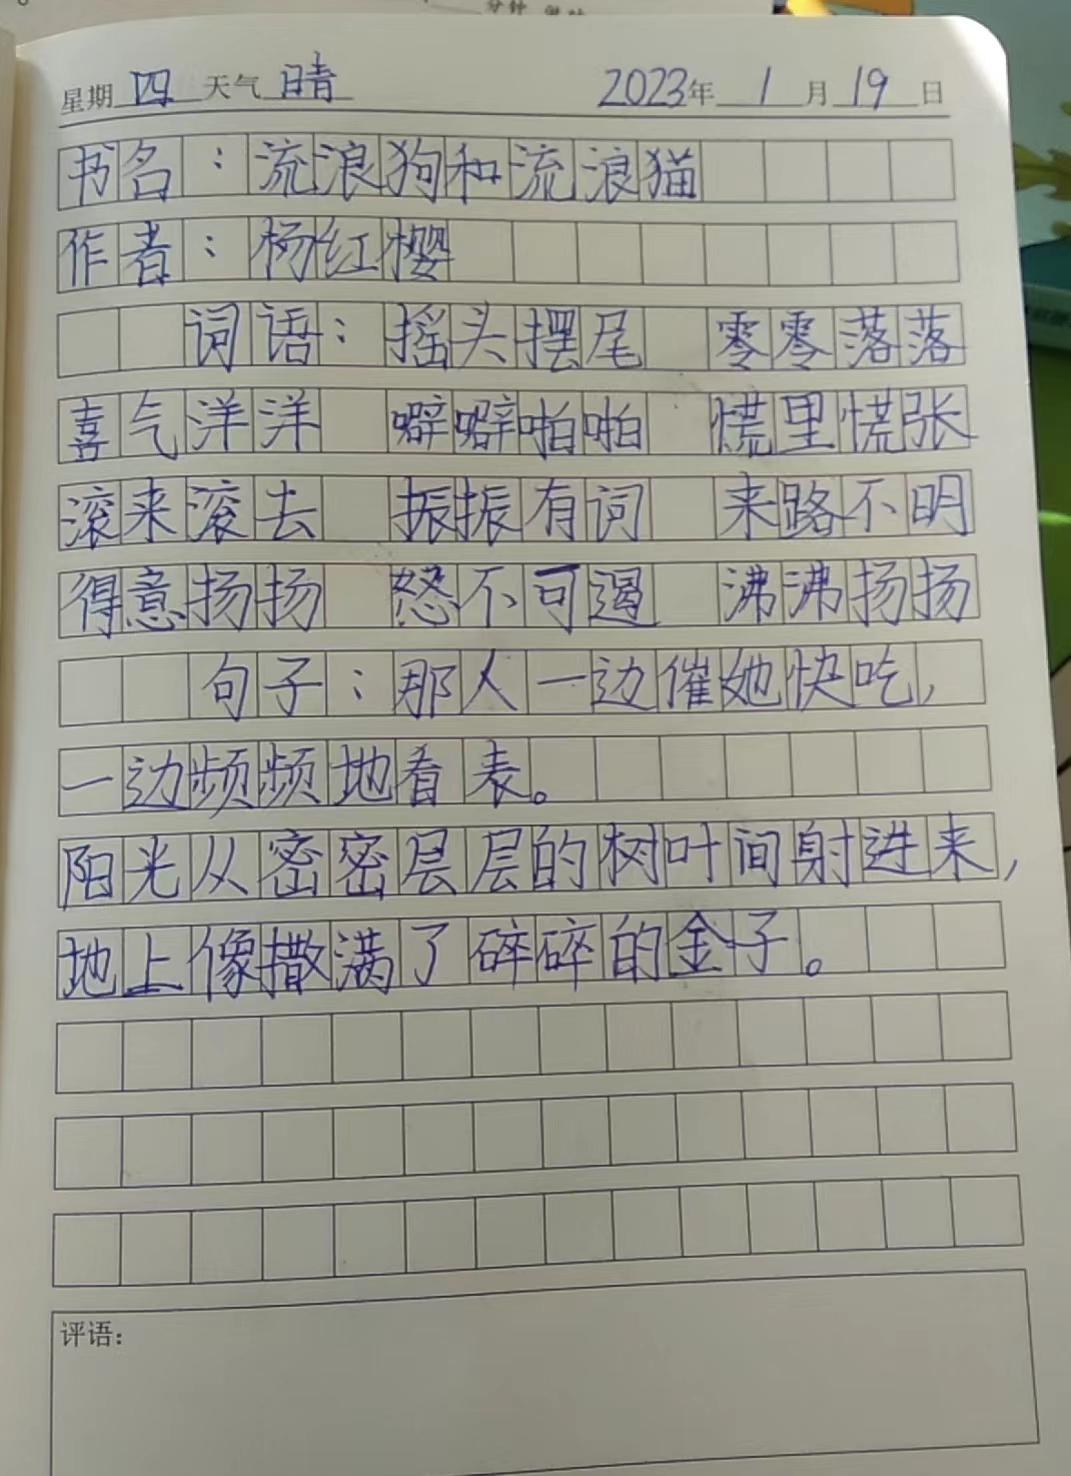 星期 四 天气 晴 2023年 1 月 19 日
书名：流浪狗和流浪猫
作者：杨红樱
词语：摇头摆尾 零零落落
喜气洋洋 噼噼啪啪 慌里慌张
滚来滚去 振振有词 来路不明
得意扬扬 怒不可遏 沸沸扬扬
句子：那人一边催她快吃，
一边频频地看表。
阳光从密密层层的树叶间射进来，
地上像撒满了碎碎的金子。
评语：